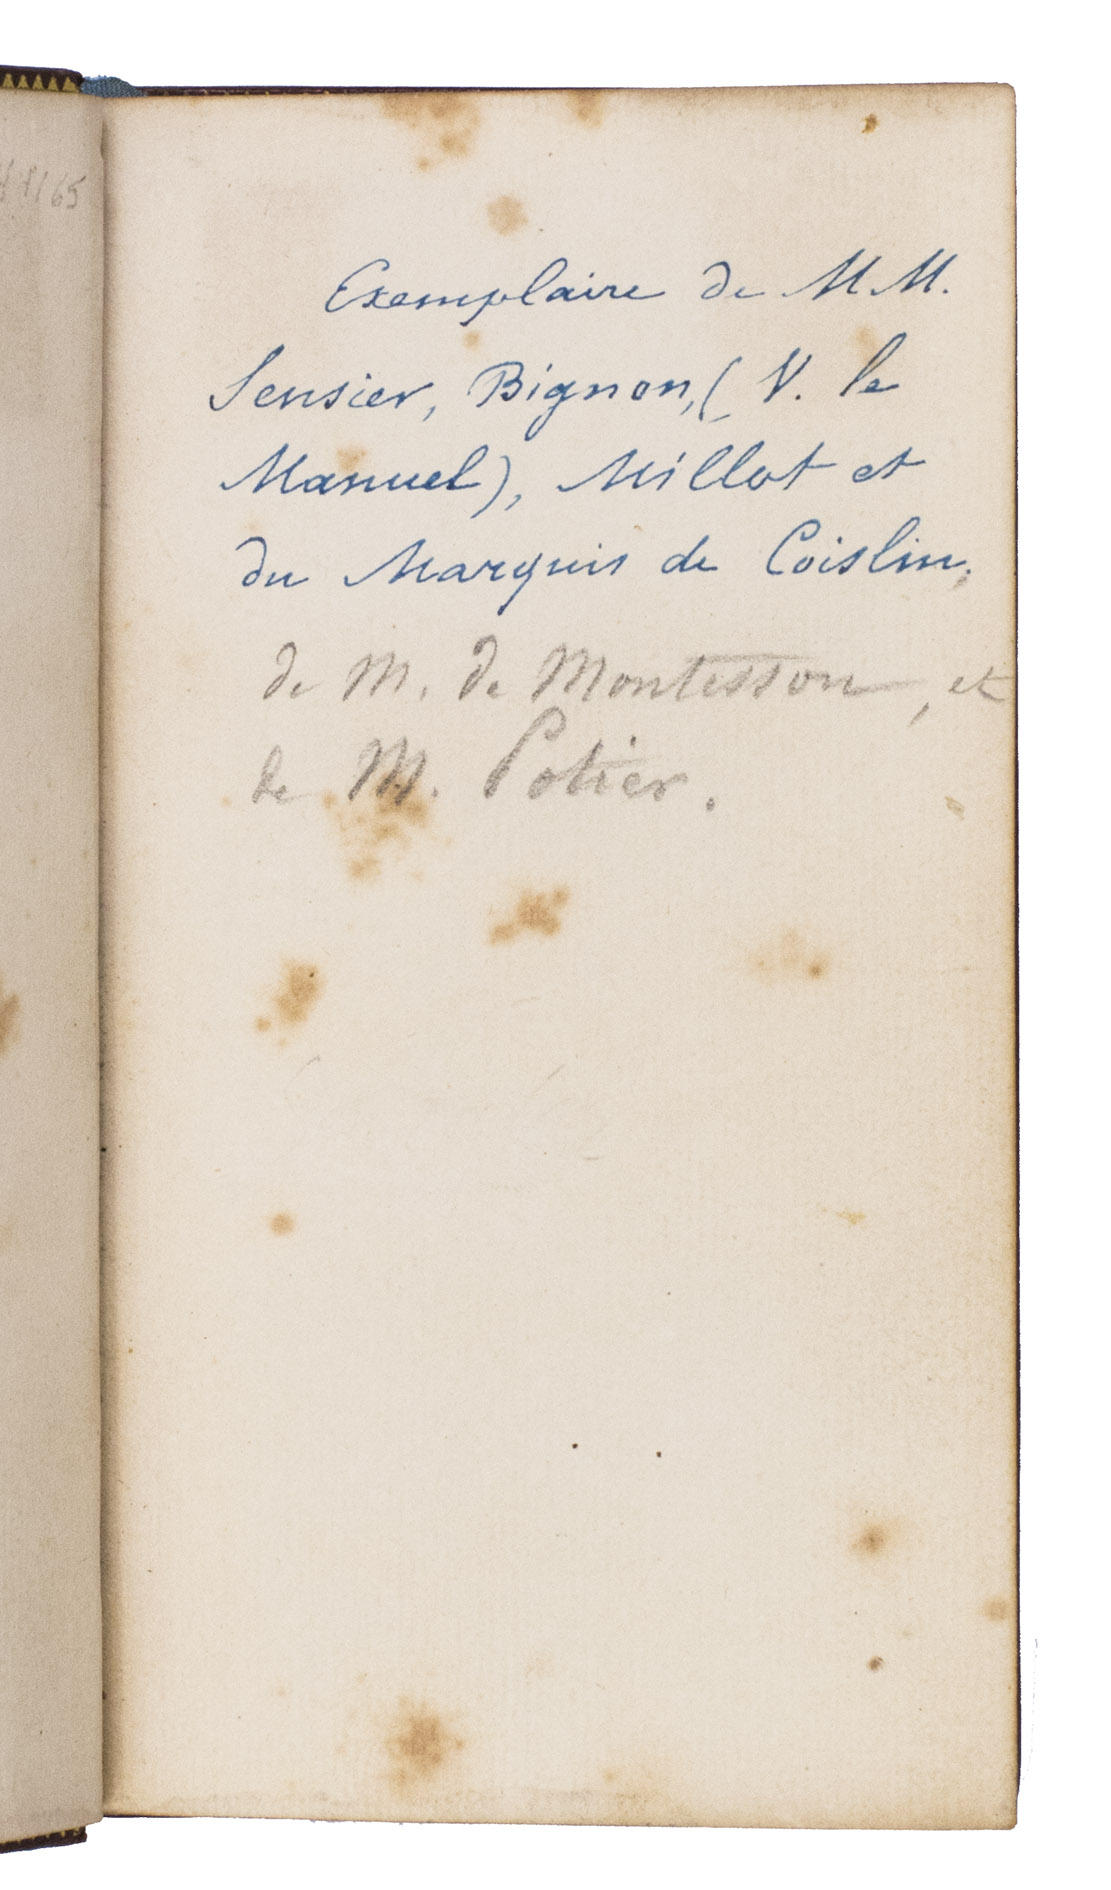 165
Exemplaire de MM.
Sensier, Bignon, (V. le
Manuel), Millot et
du Marquis de Coislin,
de M. de Montesson, et
de M. Potier.